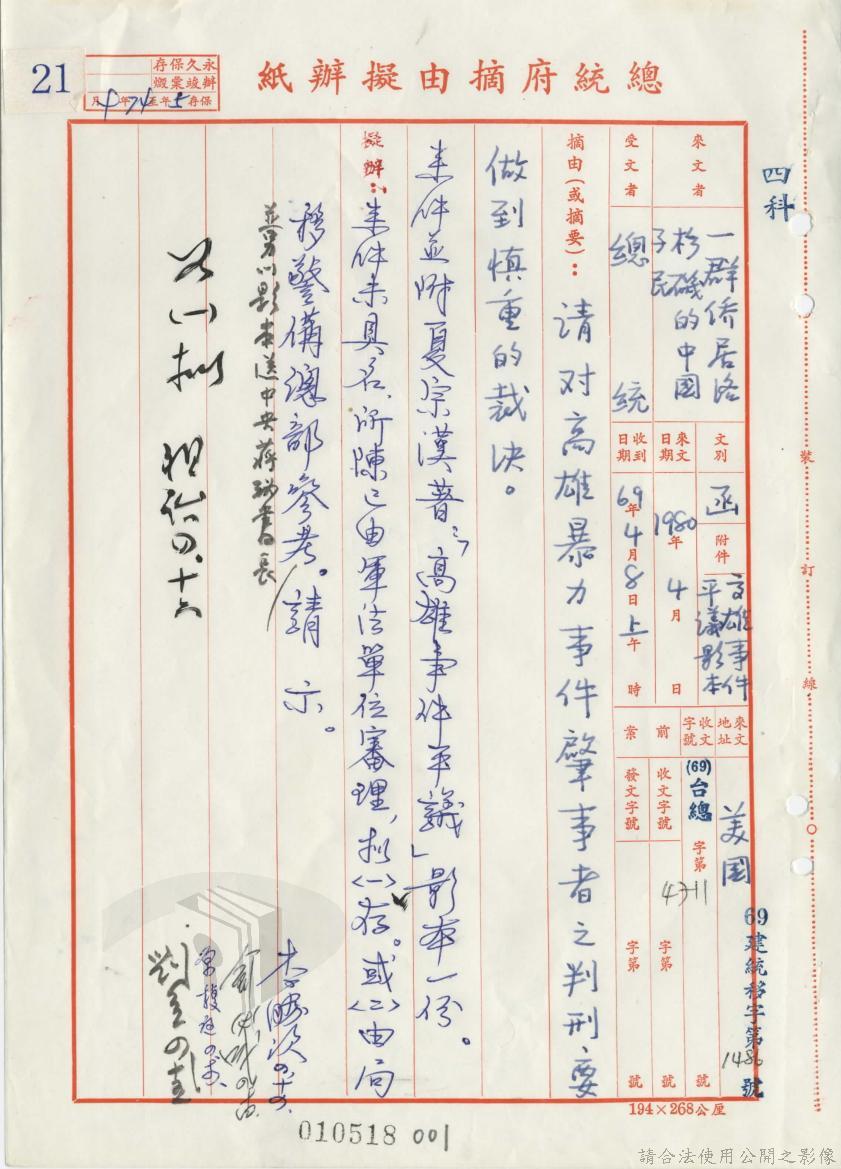 總統府摘由擬辦紙
21
永久保存
辦竣稟燬
保存5年至74年4月
四科
來文者
一群侨居洛
杉磯的中國
子民
受文者
總統
文別
函
附件
高雄事件
平議影本
來文日期
1980年4月 日
收到日期
69年4月8日上午 時
來文地址
美国
收文字號
(69)台總 字第4711號
前案
收文字號
字第 號
發文字號
字第 號
69建統移字第1480號
摘由(或摘要):
请对高雄暴力事件肇事者之判刑,要
做到慎重的裁決。
来件並附夏宗漢著「高雄事件平議」影本一份。
擬辦:
来件未具名,所陳已由軍法單位審理,拟<一>存。或<二>由局
移警備總部參考。請示。
並另以影本送中央蔣秘書長
如(一)拟
四.十六
裝訂線
194×268公厘
010518 001
請合法使用公開之影像